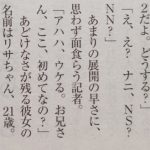 2だよ。どうする?」
「え、え? ナニ、NS?
NN?」
あまりの展開の早さに、
思わず面食らう記者。
「アハハ、ウケる。お兄さ
ん、ここ、初めてなの?」
あどけなさが残る彼女の
名前はリサちゃん、21歳。